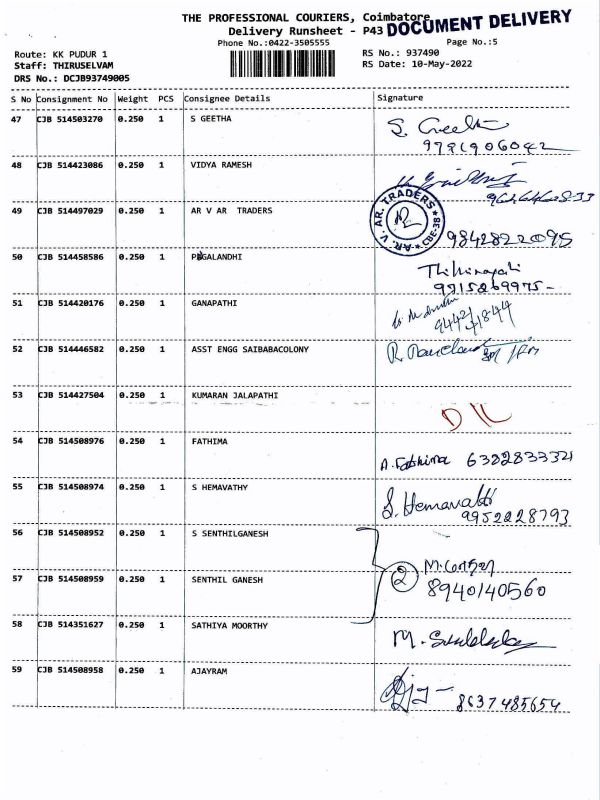 THE PROFESSIONAL COURIERS, Coimbatore
Delivery Runsheet - P43 DOCUMENT DELIVERY
Phone No.:0422-3505555 Page No.:5
Route: KK PUDUR 1 RS No.: 937490
Staff: THIRUSELVAM RS Date: 10-May-2022
DRS No.: DCJB93749005
S No Consignment No Weight PCS Consignee Details Signature
47 CJB 514503270 0.250 1 S GEETHA S. Geetha
9791906042
48 CJB 514423086 0.250 1 VIDYA RAMESH
49 CJB 514497029 0.250 1 AR V AR TRADERS AR. V. AR. TRADERS CBE-38
9842822095
50 CJB 514458586 0.250 1 PUGALANDHI
9715269975-
51 CJB 514420176 0.250 1 GANAPATHI
52 CJB 514446582 0.250 1 ASST ENGG SAIBABACOLONY
53 CJB 514427504 0.250 1 KUMARAN JALAPATHI
54 CJB 514508976 0.250 1 FATHIMA A. Fathima 6382833321
55 CJB 514508974 0.250 1 S HEMAVATHY S. Hemavathi
9952228793
56 CJB 514508952 0.250 1 S SENTHILGANESH
57 CJB 514508959 0.250 1 SENTHIL GANESH 2 8940140560
58 CJB 514351627 0.250 1 SATHIYA MOORTHY M.
59 CJB 514508958 0.250 1 AJAYRAM
8637485654